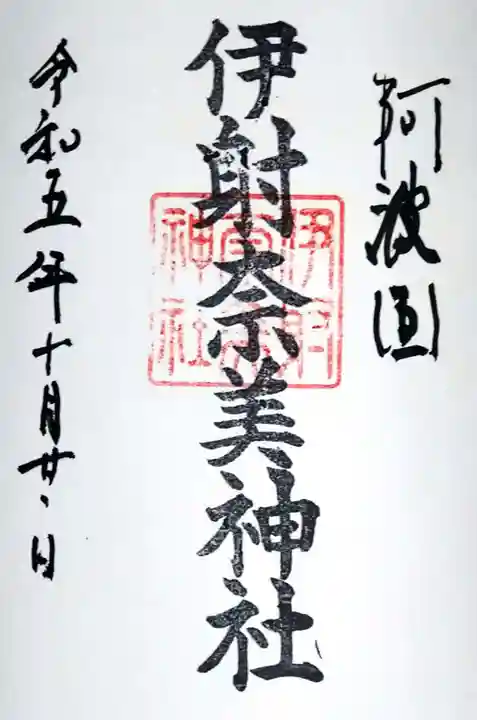 阿波国
伊射奈美神社
伊射
奈美
神社
令和五年十月廿、日